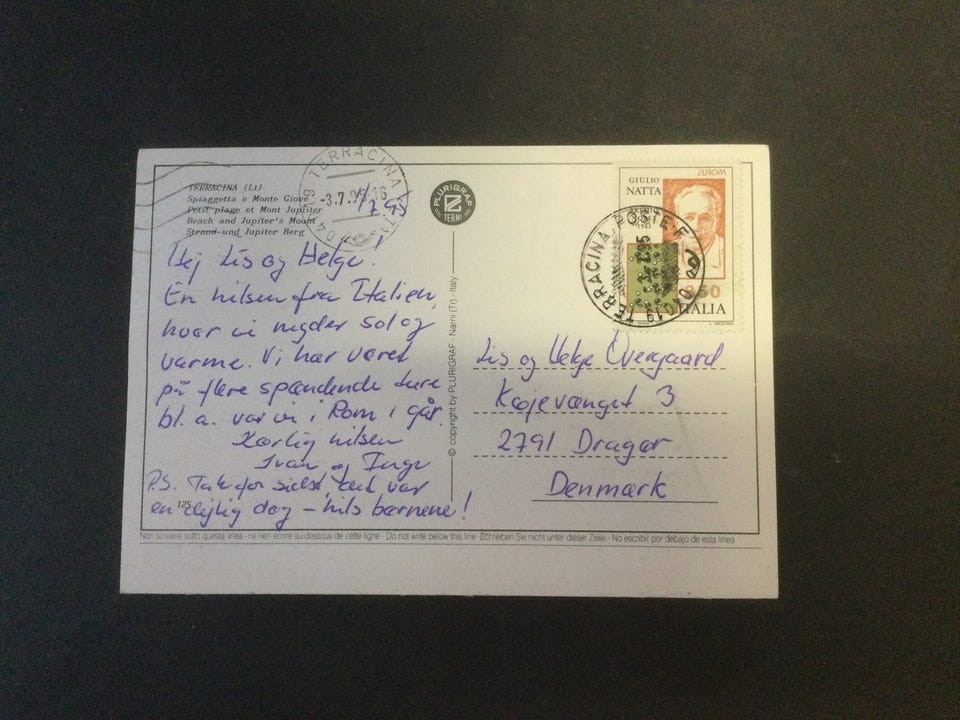 TERRACINA (Lt)
Spiaggetta e Monte Giove
Petit plage et Mont Jupiter
Beach and Jupiter's Mount
Strand und Jupiter Berg
TERRACINA
-3.7.95-16
1/7 95
Hej Lis og Helge!
En hilsen fra Italien,
hvor vi nyder sol og
varme. Vi har været
på flere spændende ture
bl. a. var vi i Rom i går.
Kærlig hilsen
Ivan og Inge
P.S. Tak for sidst, det var
en dejlig dag - hils børnene!
125
PLURIGRAF
TERNI
© copyright by PLURIGRAF - Narni (Tr) - Italy
EUROPA
GIULIO
NATTA
ITALIA
TERRACINA POSTE
04019
Lis og Helge Overgaard
Køjevænget 3
2791 Dragør
Denmark
Non scrivere sotto questa linea - ne rien écrire au-dessous de cette ligne - Do not write below this line - Schreiben Sie nicht unter dieser Zeile - No escribir por debajo de esta linea